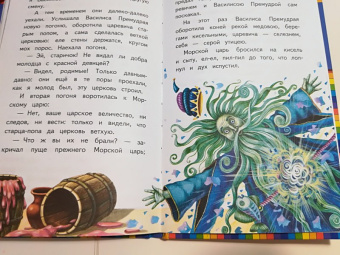 смену.
А они тем временем далеко-далеко
уехали. Услышала Василиса Премудрая
новую погоню, оборотила царевича ста-
рым попом, а сама сделалась ветхой
церковью: еле стены держатся, кругом
мох порос. Наехала погоня.
— Эй, старичок! Не видал ли добра
молодца с красной девицей?
— Видел, родимые! Только давным-
давно: они ещё в те поры проехали,
как я молод был, эту церковь строил.
И вторая погоня воротилась к Мор-
скому царю:
— Нет, ваше царское величество, ни
следов, ни вести; только и видели, что
старца-попа да церковь ветхую.
— Что ж вы их не брали? — за-
кричал пуще прежнего Морской царь;
царевич и Василисою Премудрою сам
поскакал.
На этот раз Василиса Премудрая
оборотилась рекой медовою, бере-
гами кисельными, царевича — селезнем,
себя — серой утицею.
Морской царь бросился на кисель
и сыту, ел-ел, пил-пил до того, что лоп-
нул и дух испустил.